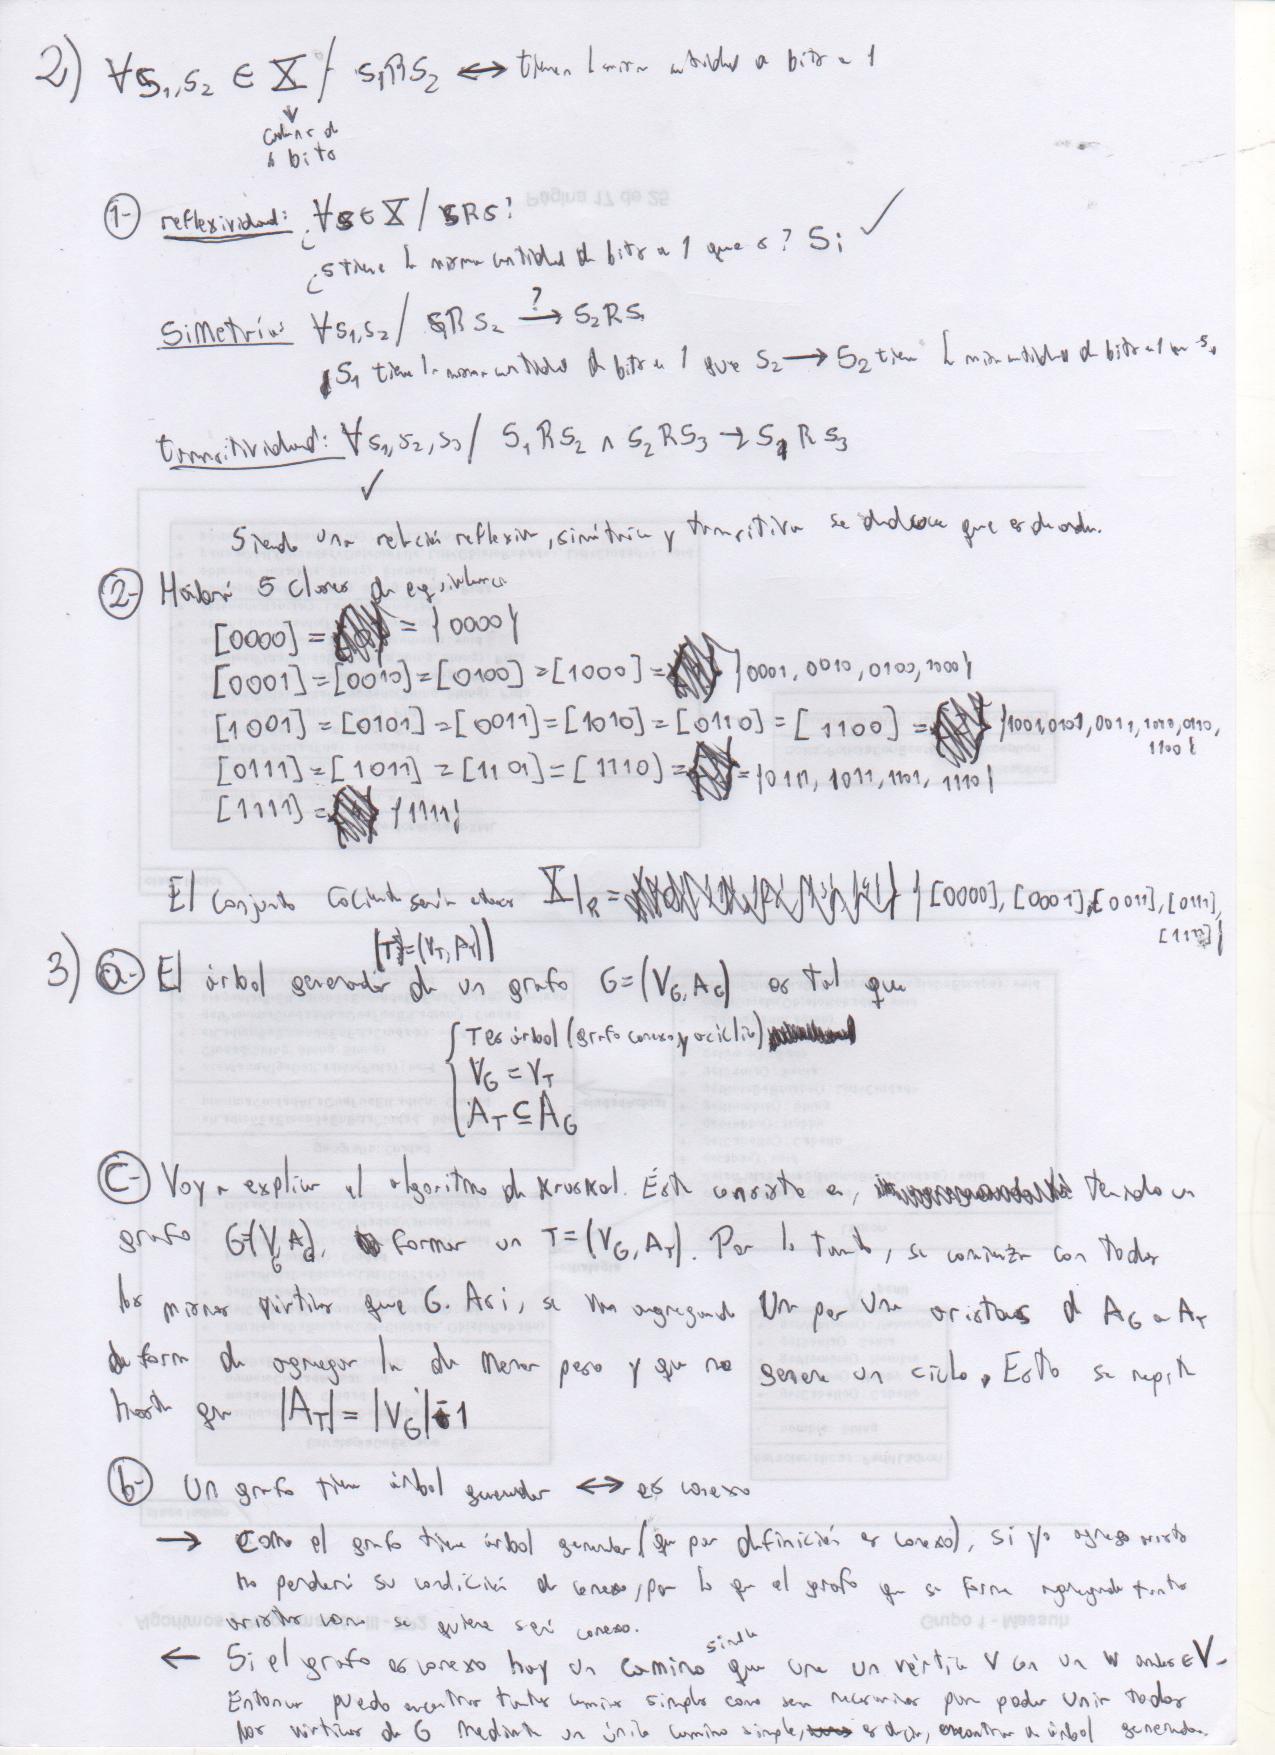 2) ∀S₁,S₂ ∈ X / S₁RS₂ ⟷ tienen la misma cantidad de bits a 1
↓
cadenas de
4 bits
1- reflexividad: ¿∀s∈X / sRs?
¿s tiene la misma cantidad de bits a 1 que s? Si ✓
Simetría: ∀s₁,s₂ / s₁Rs₂ →? s₂Rs₁
S₁ tiene la misma cantidad de bits a 1 que S₂ → S₂ tiene la misma cantidad de bits a 1 que s₁
transitividad: ∀s₁,s₂,s₃ / S₁RS₂ ∧ S₂RS₃ → S₁RS₃
✓
Siendo una relación reflexiva, simétrica y transitiva se deduce que es de
2- Habrá 5 clases de equivalencia
[0000] = = {0000}
[0001]=[0010]=[0100]=[1000]= {0001, 0010, 0100, 1000}
[1001]=[0101]=[0011]=[1010]=[0110]=[1100]= {1001,0101,0011,1010,0110,
1100}
[0111]=[1011]=[1101]=[1110]= = {0111, 1011, 1101, 1110}
[1111]= {1111}
El conjunto cociente será X/R = {[0000], [0001],[0011],[0111],
[1111]}
(T=(V_T, A_T))
3) a- El árbol generador de un grafo G=(V_G, A_G) es tal que
{ T es árbol (grafo conexo y acíclico)
V_G = V_T
A_T ⊆ A_G
C- Voy a explicar el algoritmo de Kruskal. Éste consiste en, teniendo un
grafo G=(V_G, A_G), formar un T=(V_G, A_T). Por lo tanto, se comienza con todos
los mismos vértices que G. Asi, se va agregando una por una aristas de A_G a A_T
de forma de agregar la de menor peso y que no genere un ciclo. Esto se repite
hasta que |A_T| = |V_G| - 1
b- Un grafo tiene árbol generador ⟷ es conexo
→ Como el grafo tiene árbol generador (que por definición es conexo), si yo agrego aristas
no perderá su condición de conexo, por lo que el grafo que se forma agregando tantas
aristas como se quiera será conexo.
simple
← Si el grafo es conexo hay un camino que une un vértice V con un W ambos ∈ V.
Entonces puedo encontrar tantos caminos simples como sean necesarios para poder unir todos
los vértices de G mediante un único camino simple, es decir, encontrar un árbol generador.